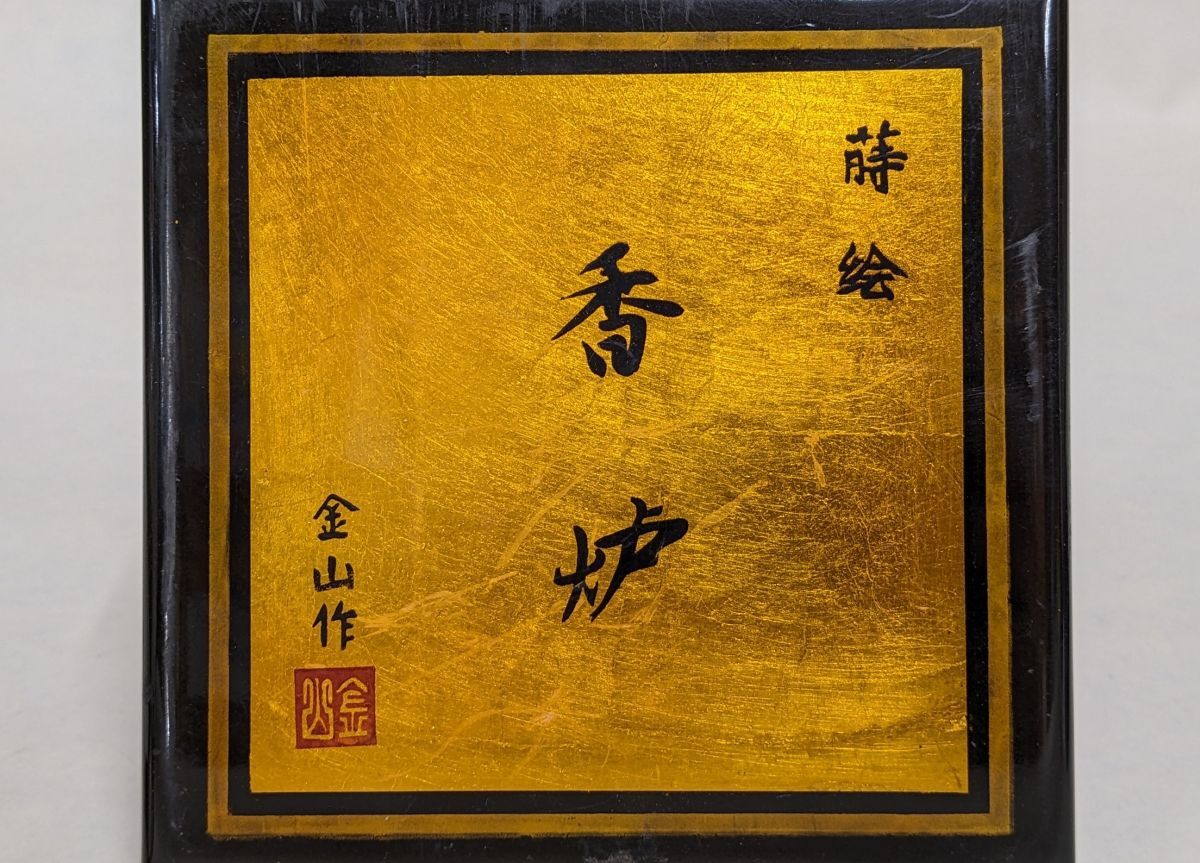 蒔絵
香炉
金山作
金山